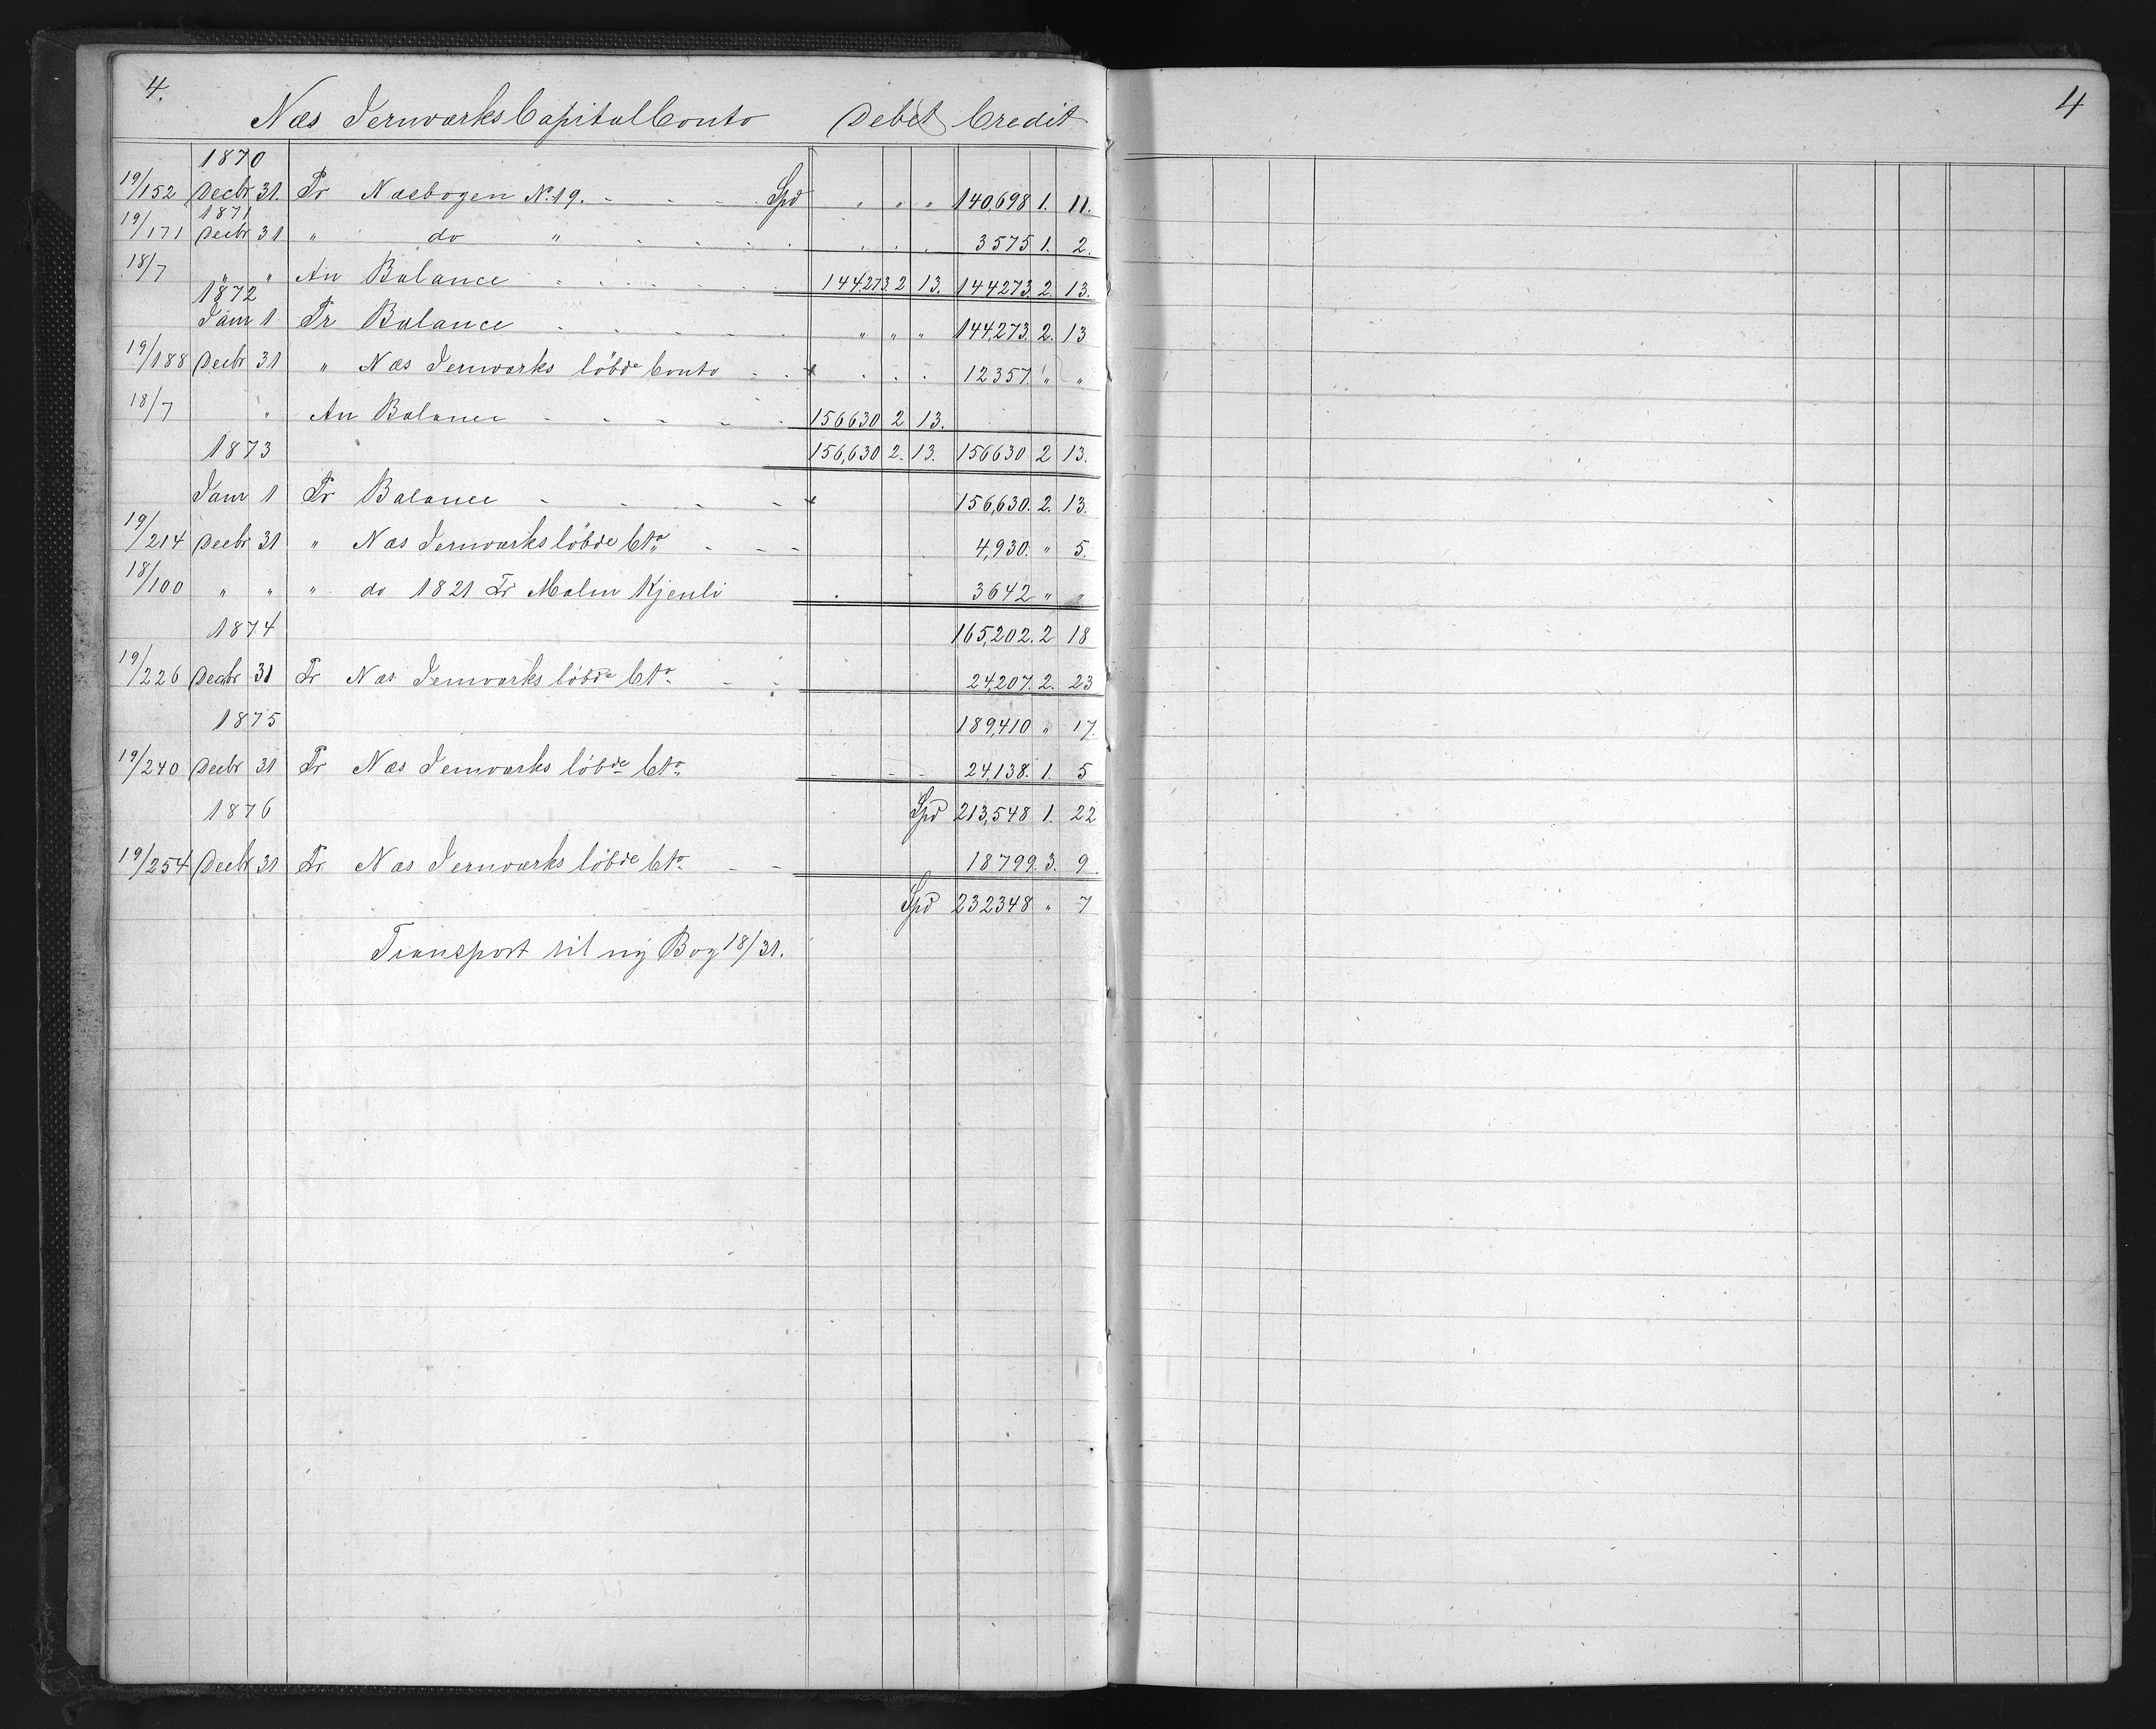 4.
Næs Jernværks Capital Conto Debet Credit
1870
19/152 Decbr 31. Pr Næsbogen No 19. Spd " " " 140,698 1. 11.
1871
19/171 Decbr 31 " do " 3575 1. 2.
18/7 " " An Balance 144,273. 2 13. 144273. 2. 13.
1872
Janr 1 Pr Balance " " " 144,273. 2. 13
19/188 Decbr 31 " Næs Jernværks löbde Conto 12357. " "
18/7 " An Balance 156630 2 13.
1873 156,630 2. 13. 156630 2 13.
Janr 1 Pr Balance 156,630. 2. 13.
19/214 Decbr 31 " Næs Jernværks löbde Cto 4,930. " 5.
18/100 " " " do 1821 Tr Malm Kjenli 3642 " "
1874 165,202. 2 18
19/226 Decbr 31 Pr Næs Jernværks löbde Cto 24,207. 2. 23
1875 189,410 " 17.
19/240 Decbr 31 Pr Næs Jernværks löbde Cto 24,138. 1. 5
1876 Spd 213,548 1. 22
19/254 Decbr 31 Pr Næs Jernværks löbde Cto 18799. 3. 9.
Spd 232348 " 7
Transport til ny Bog 18/31.
4